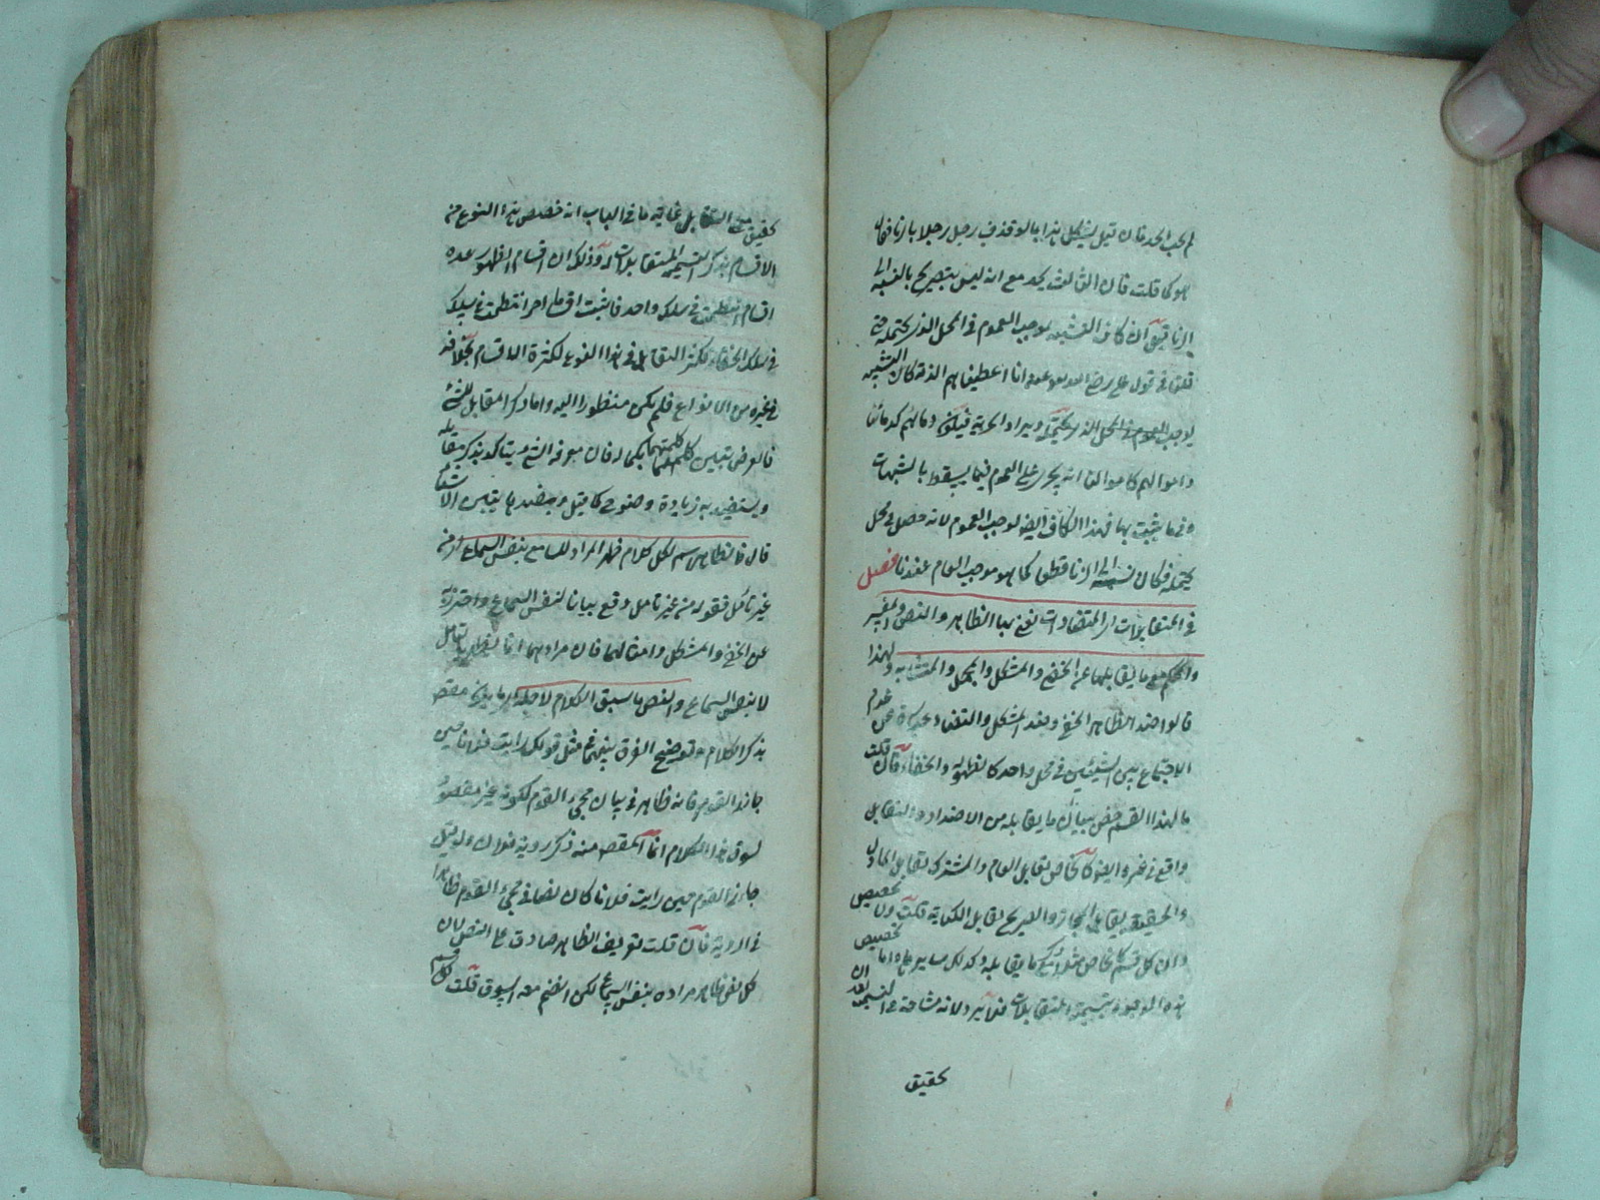 لم يجب الحد فان قيل يشكل هذا بما لو قذف رجل رجلا بالزنا فقال
هو كما قلت فان الثالث يحد مع انه ليس بتصريح بالنسبة الى
الزنا قيل ان كاف التشبيه يوجب العموم فى المحل الذى يحتمله حتى
قلنا فى قول على رضى الله عنه انا اعطيناهم الذمة كان التشبيه
يوجب العموم فى المحل الذى يحتمله ويراد الحرية فيكون دمائهم كدمائنا
واموالهم كاموالنا انه يجرى على العموم فيما يسقط بالشبهات
وفيما يثبت بها فهذا الكاف ايضا يوجب العموم لانه حصل فى محل
يحتمله فكان نسبة الى الزنا قطعا كما هو موجب العام عندنا فصل
فى المتقابلات اى المتضادات نعنى بها الظاهر والنص والمفسر
والمحكم مع ما يقابلها من الخفى والمشكل والمجمل والمتشابه ولهذا
قالوا ضد الظاهر الخفى وضد المشكل والتضاد عبارة عن عدم
الاجتماع بين الشيئين فى محل واحد كالظهور والخفاء فان قلت
ما لهذا القسم خص ببيان ما يقابله من الاضداد والتقابل
واقع فى غيره ايضا كالخاص يقابل العام والمشترك يقابل الماول
والحقيقة يقابل المجاز والصريح يقابل الكناية قلت تخصيص
وان كل قسم كالخاص مثلا كما يقابله وكذلك سايره اما تخصيص
هذه الوجوه بتسمية المتقابلات فلا يرد لانه مشاحة فى التسمية بعد ان
تحقيق
تحقيق معنى التقابل غاية ما فى الباب انه خصص هذا النوع من
الاقسام بذكر التسمية المتقابلات وذلك ان اقسام الظهور عده
اقسام انتظمت فى سلك واحد فاثبت اقساما اخر انتظمت فى سلك
فى سلك الخفاء فكثر التقابل فى هذا النوع لكثرة الاقسام بخلافه
فى غيره من الانواع فلم يكن منظورا اليه واما ذكر المقابل للشئ
فالغرض تبيين كلمتهما بكماله فان معرفة الشئ يتاكد بذكر مقابله
ويستفيد به زيادة وضوح كما قيل وبضدها يتبين الاشياء
قال فالظاهر اسم لكل كلام ظهر المراد للسامع بنفس السماع من
غير تامل فقوله من غير تامل وقع بيانا لنفس السماع واحترز به
عن الخفى والمشكل وامثالهما فان مرادهما انما يظهر بالتامل
لا بنفس السماع والنص ما سيق الكلام لاجله اى ما يكون مقص
بذكر الكلام وتوضيح الفرق بينهما فى مثل قولك رايت فلانا حين
جاءنى القوم فانه ظاهر فى بيان مجئ القوم لكونه غير مقصود
بسوق هذا الكلام انما المقص منه ذكر روية فلان ولو قيل
جاءنى القوم حين رايت فلانا كان نصا فى مجئ القوم ظاهرا
فى الروية فان قلت تعريف الظاهر صادق على النص لان
كل نص ظاهر مراده بنفس السماع لكن انضم معه السوق قلت كل قسم